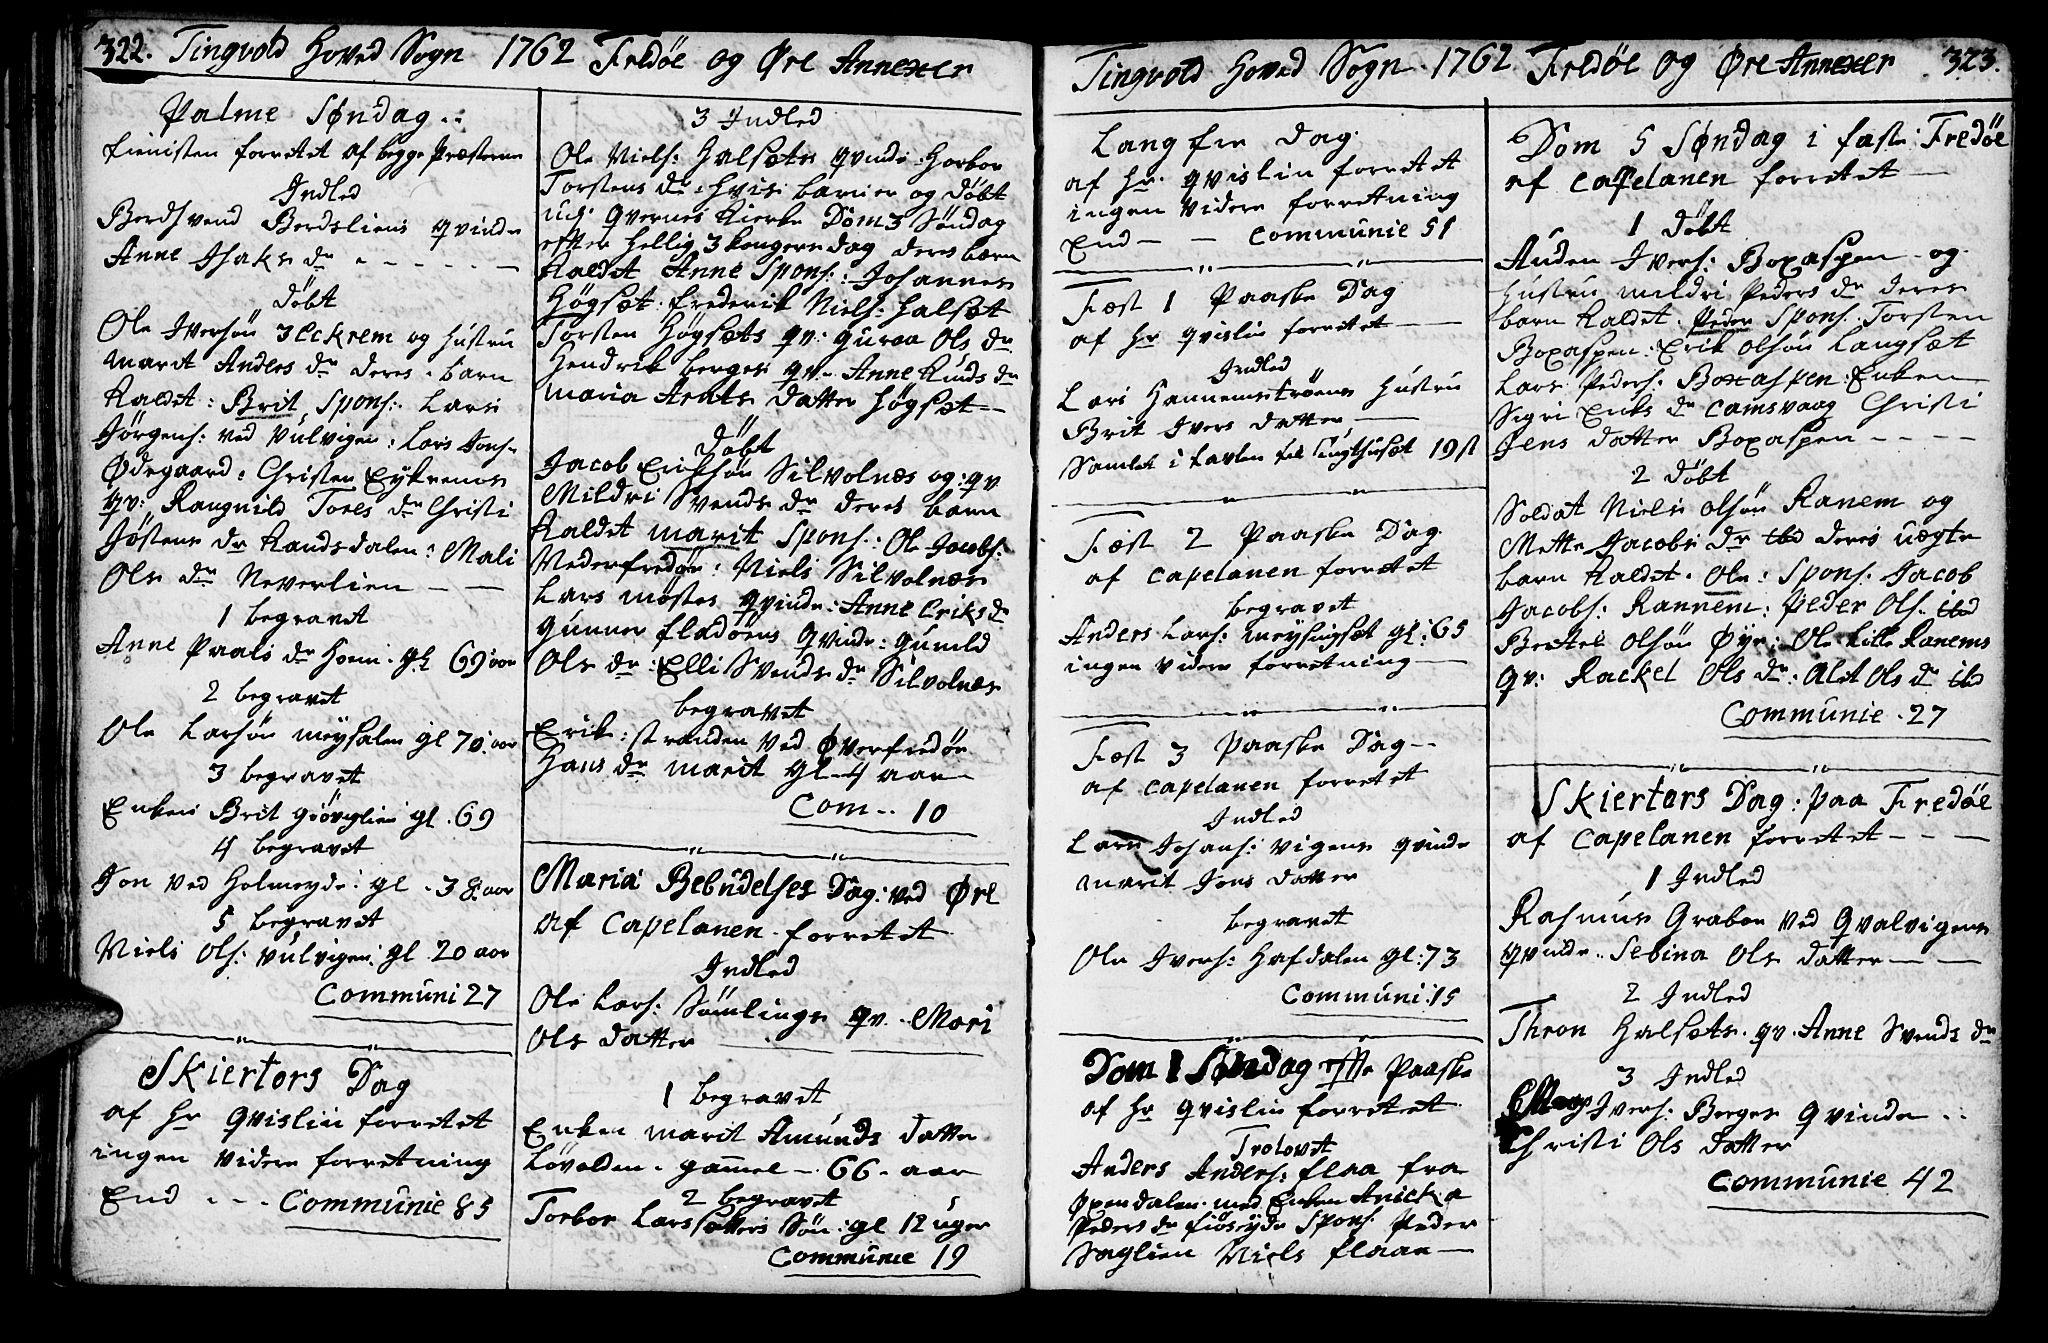 322. Tingvold Hoved Sogn 1762 Fredöe og Øre Annexer
Palme Søndag
tienisten forretet af begge Præsterne
Indled
Berdsvend Berdsliens qvinde
Anne Isaks dr
döbt
Ole Iversön 3Eckrem og hustru
Maret Anders dr deres barn
Kaldet: Brit, Spons: Lars
Jörgens: ved Vulvigen: Lars Jons-
Ødegaard: Christen Eykrenes
qv: Rangnild Tores dr Christi
Jöstens dr Kandsdalen: Mali
Ols dr Neverlien
1 begravet
Anne Paals dr Hem. gl 69 aar
2 begravet
Ole Larsön meysalen gl 70: aar
3 begravet
Enken Brit giövglien gl. 69
4 begravet
Jon ved Holmeyde: gl. 38: aar
5 begravet
Niels Ols: Vulvigen: gl 20 aar
Communi 27
Skiertors Dag
af hr qvislin forretet
ingen videre forretning
End - - - Communie 85
3 Indled
Ole Niels: Halsets qvinde: Horbor
Torstens dr: hvis barn er og döbt
udi qvernes Kierke Dom 3 Söndag
efter hellig 3 kongers dag deres bærn
Kaldet Anne Spons: Johannes
Högset. frederik Niels: halset
Torsten Högsets qv: guroa Ols dr
Hendrik berges qv. Anne Knuds dr
maria Arnts datter högset
Döbt
Jacob Eriksön Silvolnæs og: qv
Mildri Svends dr deres barn
Kaldet marit Spons: Ole Jacobs:
Nederfredöe: Niels Silvolnæs
Lars möstes qvinde: Anne Eriks dr
gunner fladöens qvinde: gunild
Ols dr: Elli Svends dr Silvolnæs
begravet
Erik: stranden ved Øverfredöe
Hans dr marit gl - 4 aar
Com - 10
Maria Bebudelses Dag: ved Øre
af Capelanen forretet
Indled
Ole Lars: Sömlings qv. Mari
Ols datter
1 begravet
Enken marit Amunds datter
Lövolden. gamel - 66 - aar
2 begravet
Torbor Lars Sön: gl 12 uger
Communie 19
Tingvold Hoved Sogn. 1762 Fredöe og Øre Annexer 323.
Langfre Dag
af hr. qvislin forretet
ingen videre forretning
End - - Communie 51
Fæst 1 Paaske Dag
af hr qvislin forretet
Indled
Lars Hannemströens hustru
Brit Ivers datter
Samlet i tavlen til 19 s
Fæst 2 Paaske Dag
af Capelanen forretet
begravet
Anders Lars: meysingset gl: 65
ingen videre forretning
Fæst 3 Paaske Dag
af Capelanen forretet
Indled
Lars Johans: Vigens qvinde
marit Jens datter
begravet
Ole Ivers: Hafdalen gl: 73
Communi: 15
Dom 1 Søndag efter Paaske
af hr qvislin forretet
Trolovet
Anders Anders: flaa fra
Øpendalen. med Enken Anicka
Peders dr fiöseyde Spons. Peder
Saglien Niels flaae
Dom 5 Søndag i faste: Fredöe
af Capelanen forretet
1 Döbt
Auden Ivers: Boxaspen - og
hustru mildri Peders dr deres
barn Kaldet. Peder Spons. Torsten
Boxaspen: Erik olsön Langsæt
Lars Peders: Boxaspen: Enken
Segri Eriks dr Camsvaag Christi
Jens datter Boxaspen
2 döbt
Soldat Niels olsön Ranem og
Mette Jacobs dr ibd deres uegte
barn Kaldet. Ole: Spons. Jacob
Jacobs: Rannem: Peder Ols. ibd
Bertel olsön Øye: Ole lille Ranems
qv: Rackel Ols dr: Alet Ols dr ibd
Communie. 27
Skiertors Dag: paa Fredöe
af Capelanen forretet
1 Indled
Rasmus Graben ved Qvalvigens
qvinde.. Sebina Ols datter
2 Indled
Thron Halsets. qv. Anne Svends dr
3 Indled
Ivers: Berges qvinde
Christi Ols datter
Communie 42